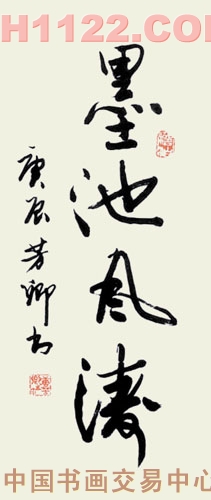 H1122.COM
墨池风涛
庚辰芳卿书
中国书画交易中心